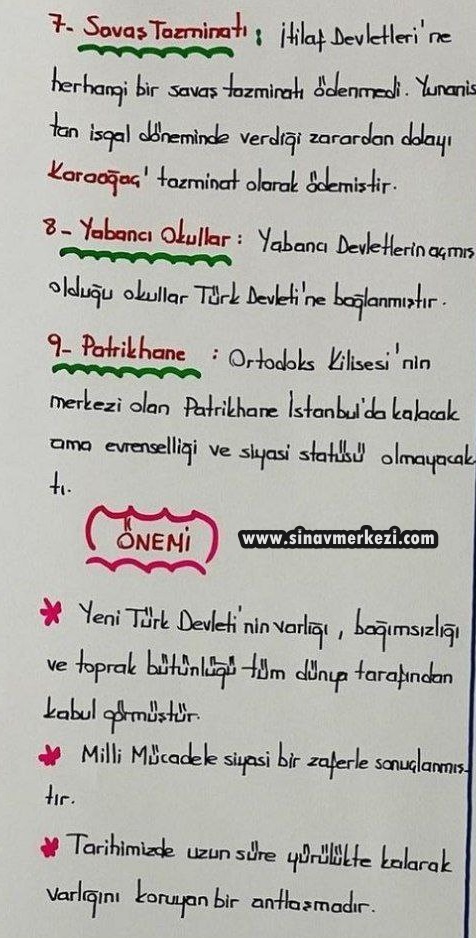 7- Savaş Tazminatı : İtilaf Devletleri'ne
herhangi bir savaş tazminatı ödenmedi. Yunanis
tan işgal döneminde verdiği zarardan dolayı
Karaağaç' tazminat olarak ödemiştir.
8- Yabancı Okullar : Yabancı Devletlerin açmış
olduğu okullar Türk Devleti'ne bağlanmıştır.
9- Patrikhane : Ortodoks Kilisesi'nin
merkezi olan Patrikhane İstanbul'da kalacak
ama evrenselliği ve siyasi statüsü olmayacak
tı.
ÖNEMİ
www.sinavmerkezi.com
* Yeni Türk Devleti'nin varlığı, bağımsızlığı
ve toprak bütünlüğü tüm dünya tarafından
kabul görmüştür.
* Milli Mücadele siyasi bir zaferle sonuçlanmış-
tır.
* Tarihimizde uzun süre yürülükte kalarak
varlığını koruyan bir antlaşmadır.